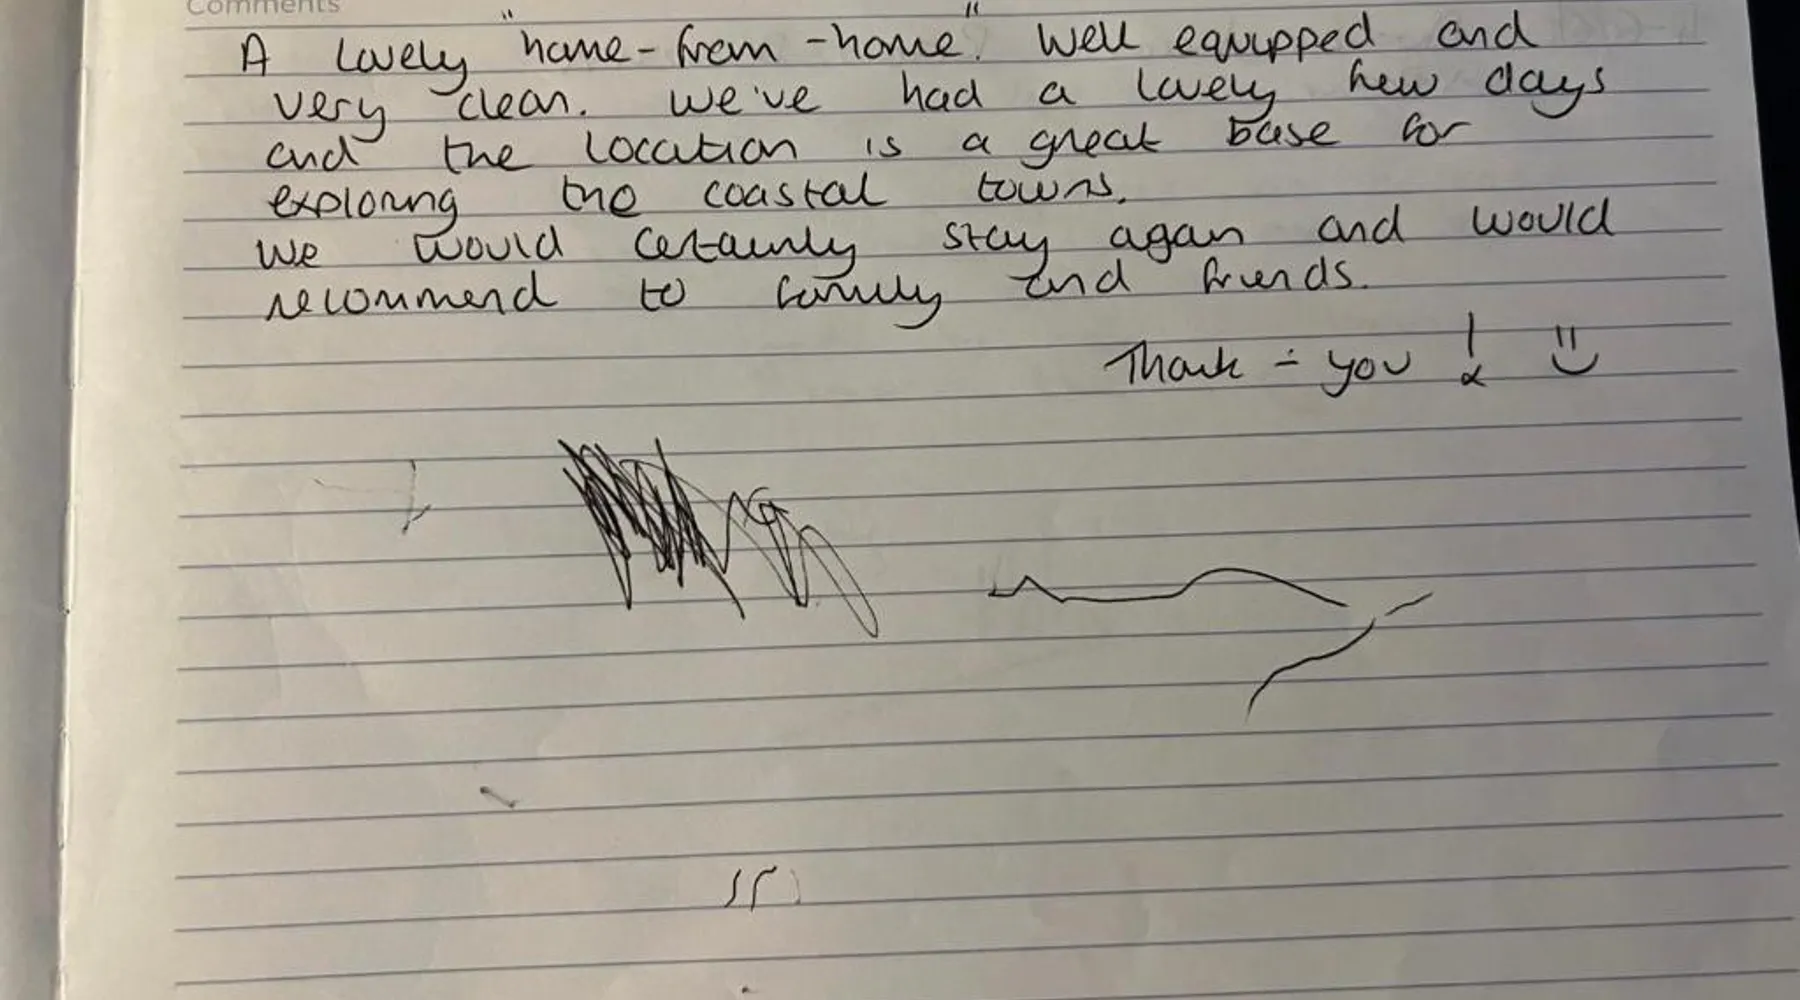 Comments
A lovely "home-from-home". Well equipped and
very clean. We've had a lovely few days
and the location is a great base for
exploring the coastal towns.
We would certainly stay again and would
recommend to family and friends.
Thank-you! :)